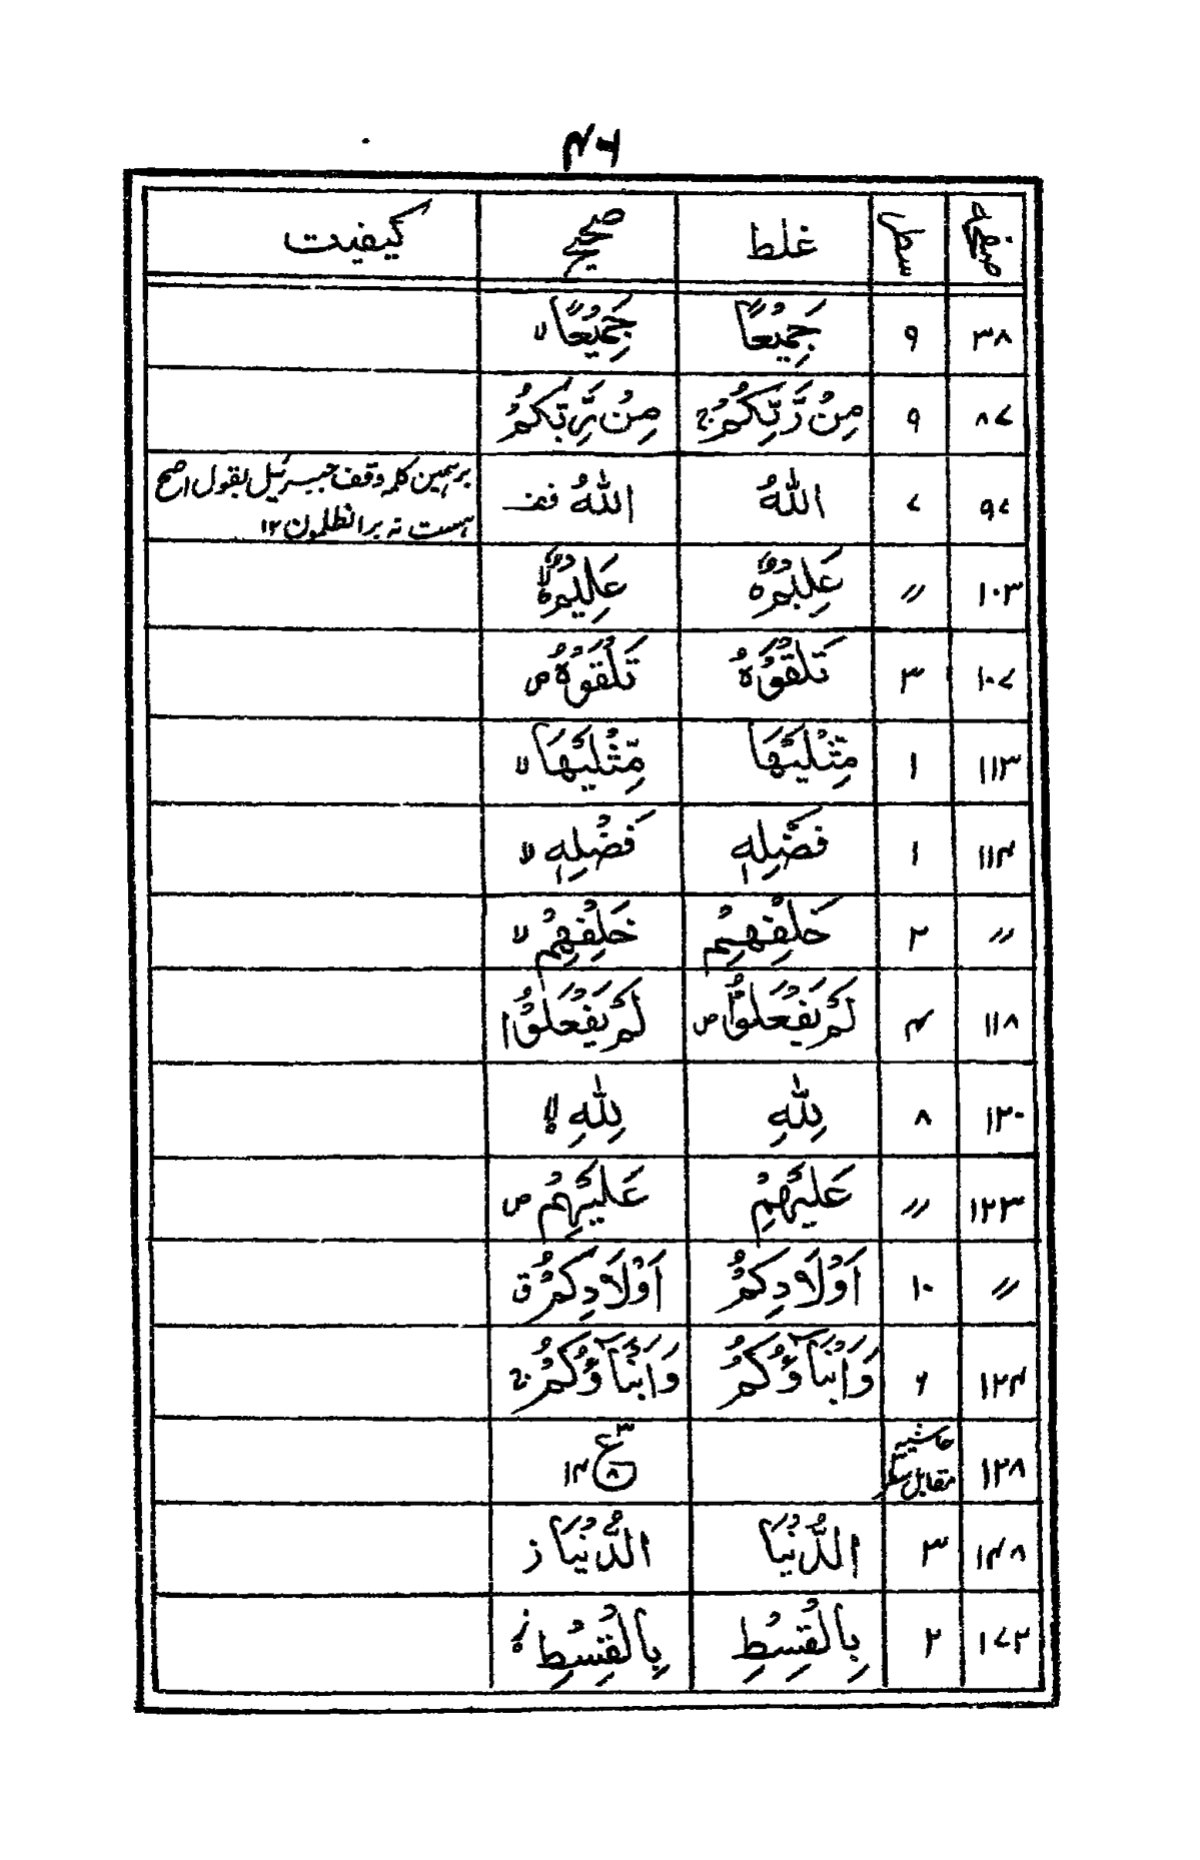 ۴۶
صفحہ سطر غلط صحیح کیفیت
۳۸ ۹ جَمِیْعًا جَمِیْعًا لا
۸۷ ۹ مِنْ رَّبِّکُمْ ج مِنْ رَّبِّکُمْ
۹۷ ۷ اللّٰہُ اللّٰہُ قف برہمین کلمہ وقف جبرئیل بقول اصح
ہست نہ بر انظلمون ۱۲
۱۰۳ // عَلِیْمٌ ہ عَلِیْمٌ ہ لا
۱۰۷ ۳ تَلْقَوْہُ تَلْقَوْہُ ص
۱۱۳ ۱ مِّثْلَیْہَا مِّثْلَیْہَا لا
۱۱۴ ۱ فَضْلِہٖ فَضْلِہٖ لا
// ۲ خَلْفِہِمْ خَلْفِہِمْ لا
۱۱۸ ۴ لَمْ یَفْعَلُوْا ص لَمْ یَفْعَلُوْا
۱۲۰ ۸ لِلّٰہِ لِلّٰہِ لا
۱۲۳ // عَلَیْہِمْ عَلَیْہِمْ ص
// ۱۰ اَوْلَادِکُمْ اَوْلَادِکُمْ ق
۱۲۴ ۶ وَاَبْنَآؤُکُمْ وَاَبْنَآؤُکُمْ ج
۱۲۸ حاشیہ مقابل سطر ۳ ع ۸ ۱۴
۱۴۸ ۳ الدُّنْیَا الدُّنْیَا ز
۱۷۲ ۲ بِالْقِسْطِ بِالْقِسْطِ ز